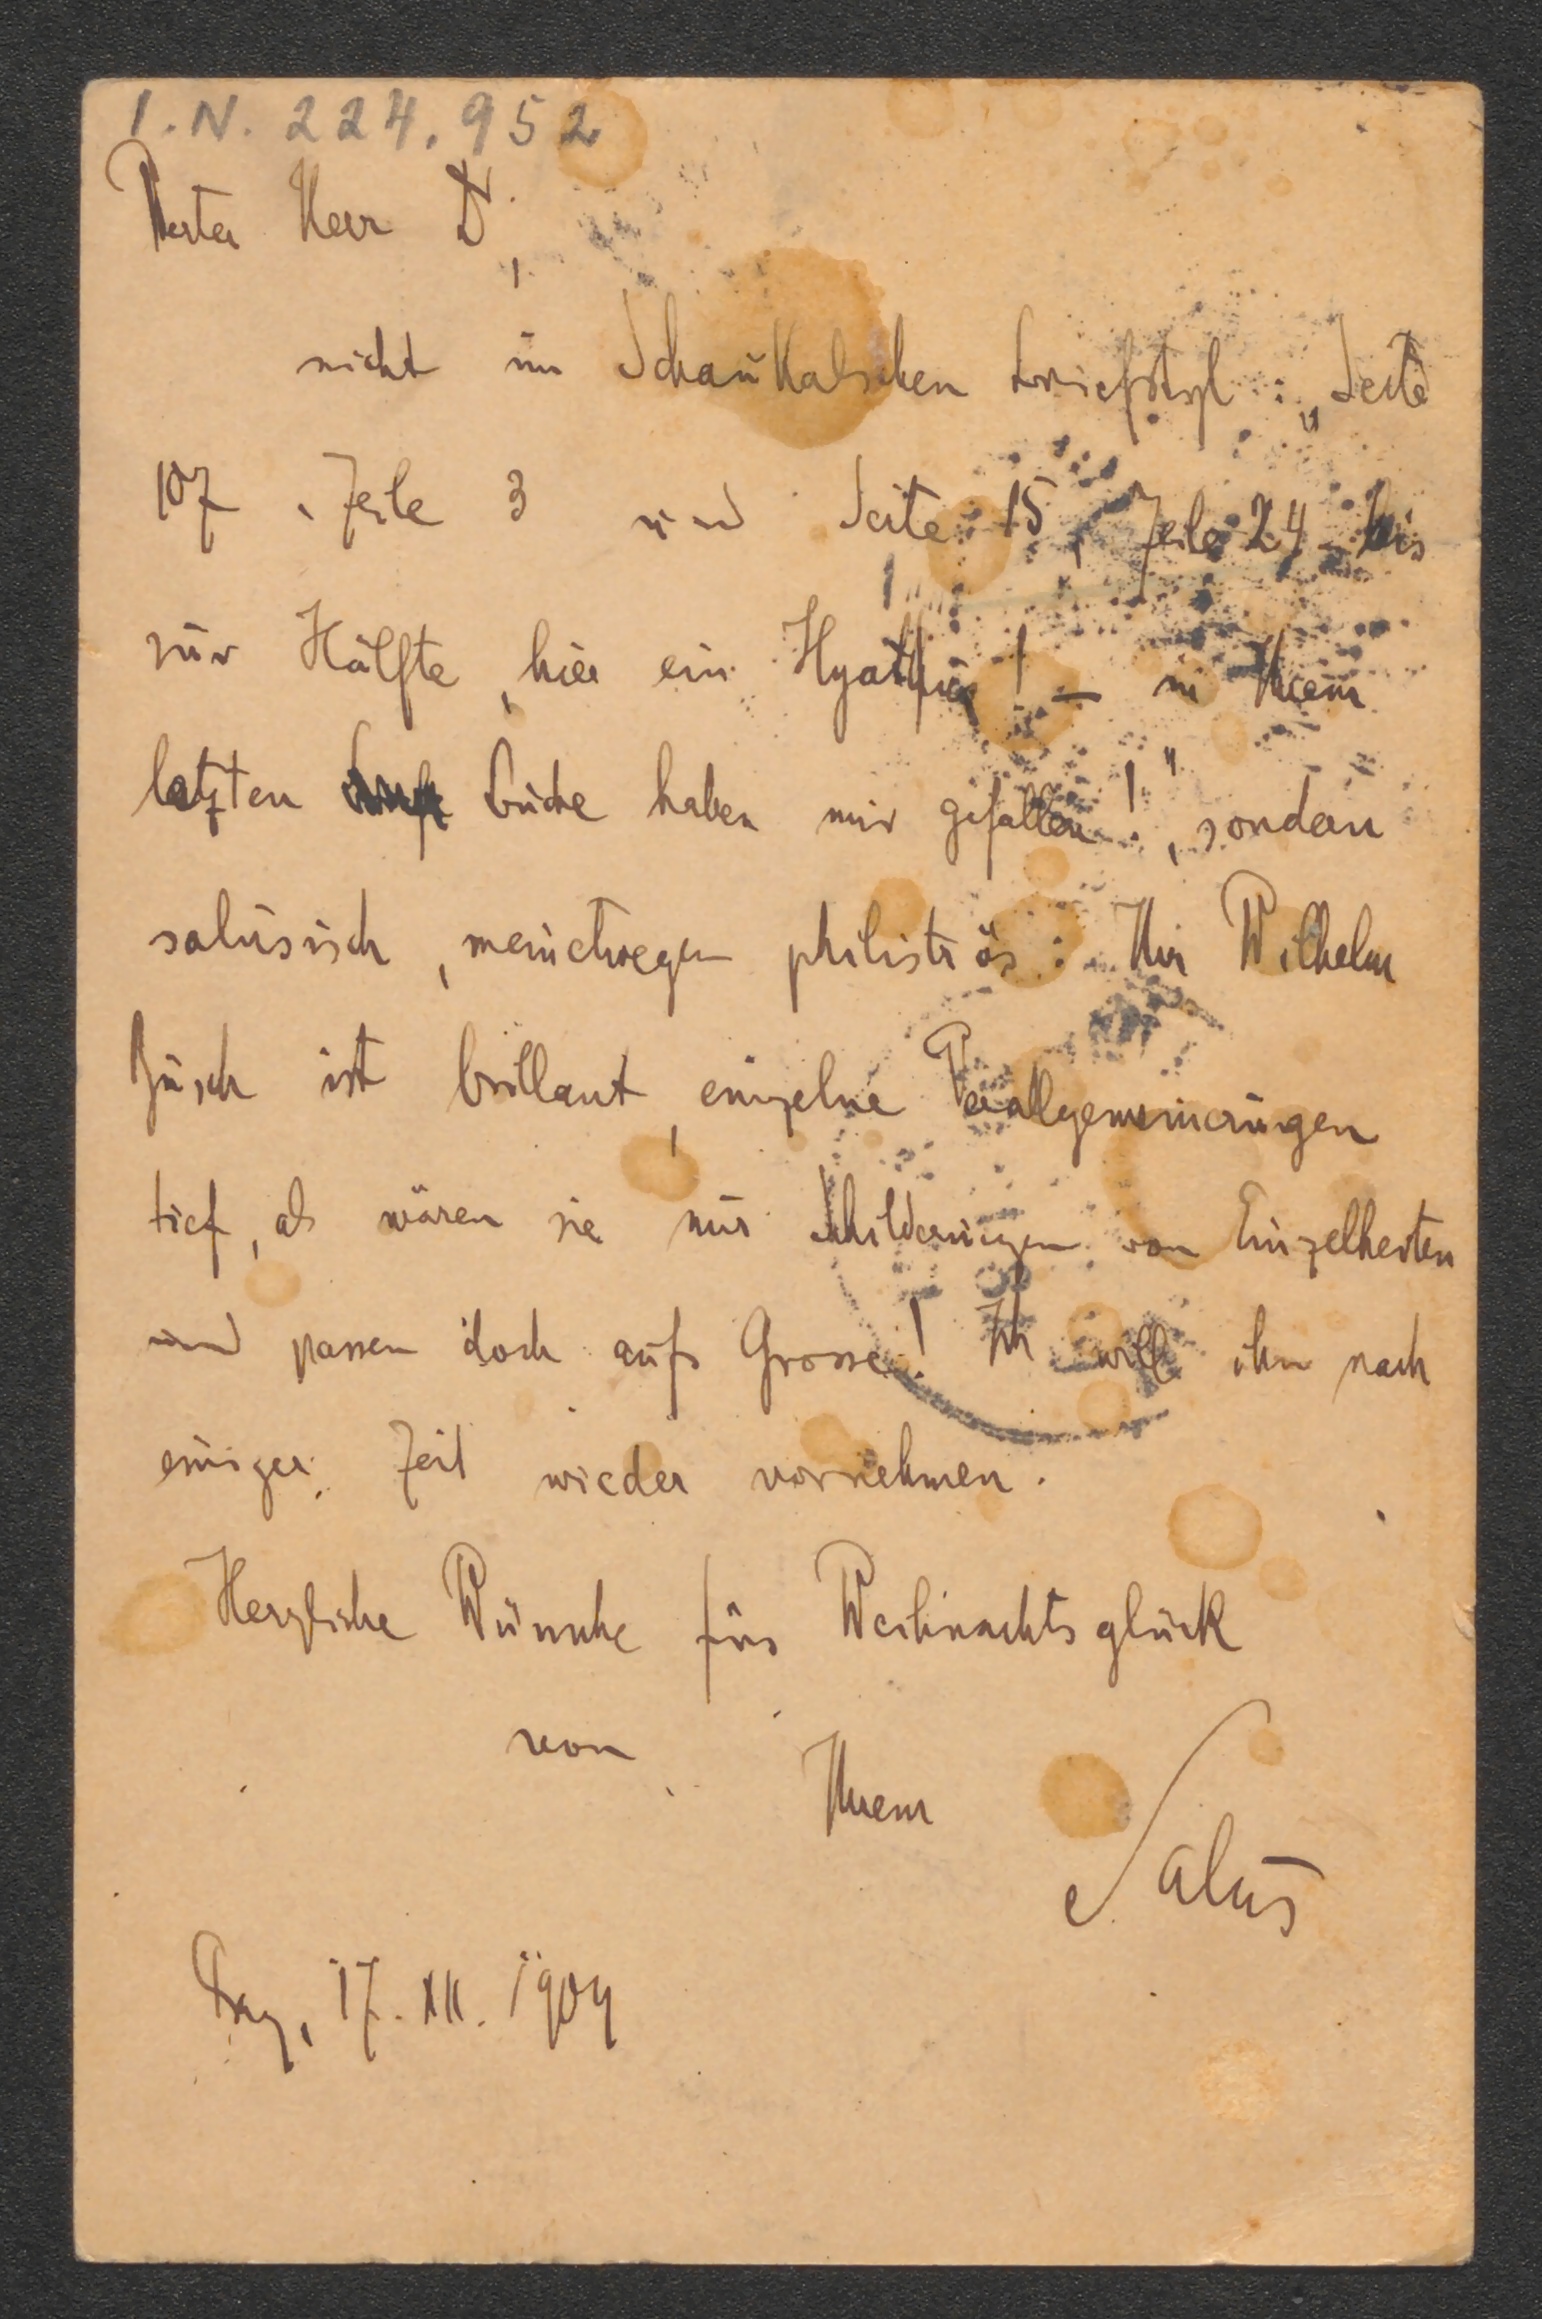 I.N. 224.952
Werter Herr Dr,
nicht im Schaukalschen Briefstyl: „Seite
107, Zeile 3 und Seite 15, Zeile 24 bis
zur Hälfte, hier ein ! – in Ihrem
letzten Buche haben mir gefallen!", sondern
salusisch, meinetwegen philiströs: Ihr Wilhelm
Busch ist brillant, einzelne Verallgemeinerungen
tief, als wären sie nur Schilderungen von Einzelheiten
und passen doch aufs Grosse! Ich will ihn nach
einiger Zeit wieder vornehmen.
Herzliche Wünsche fürs Weihnachtsglück
von Ihrem
Salus
Prag, 17. XII. 1904